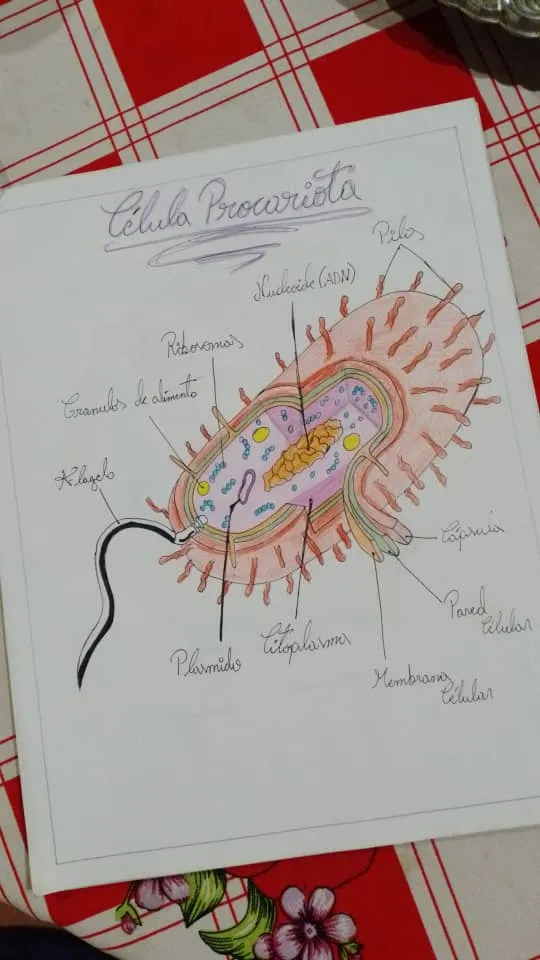 Célula Procariota
Pilos
Nucleoide (ADN)
Ribosomas
Granulos de alimento
Flagelo
Cápsula
Pared
Célular
Membrana
Célular
Citoplasma
Plasmido